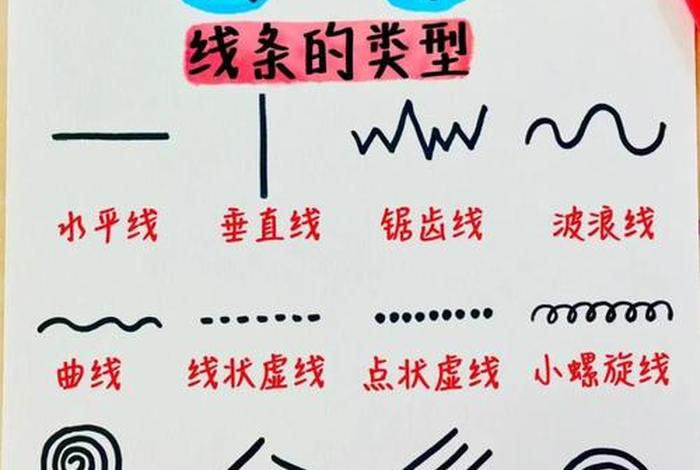 线条的类型
水平线 垂直线 锯齿线 波浪线
曲线 线状虚线 点状虚线 小螺旋线